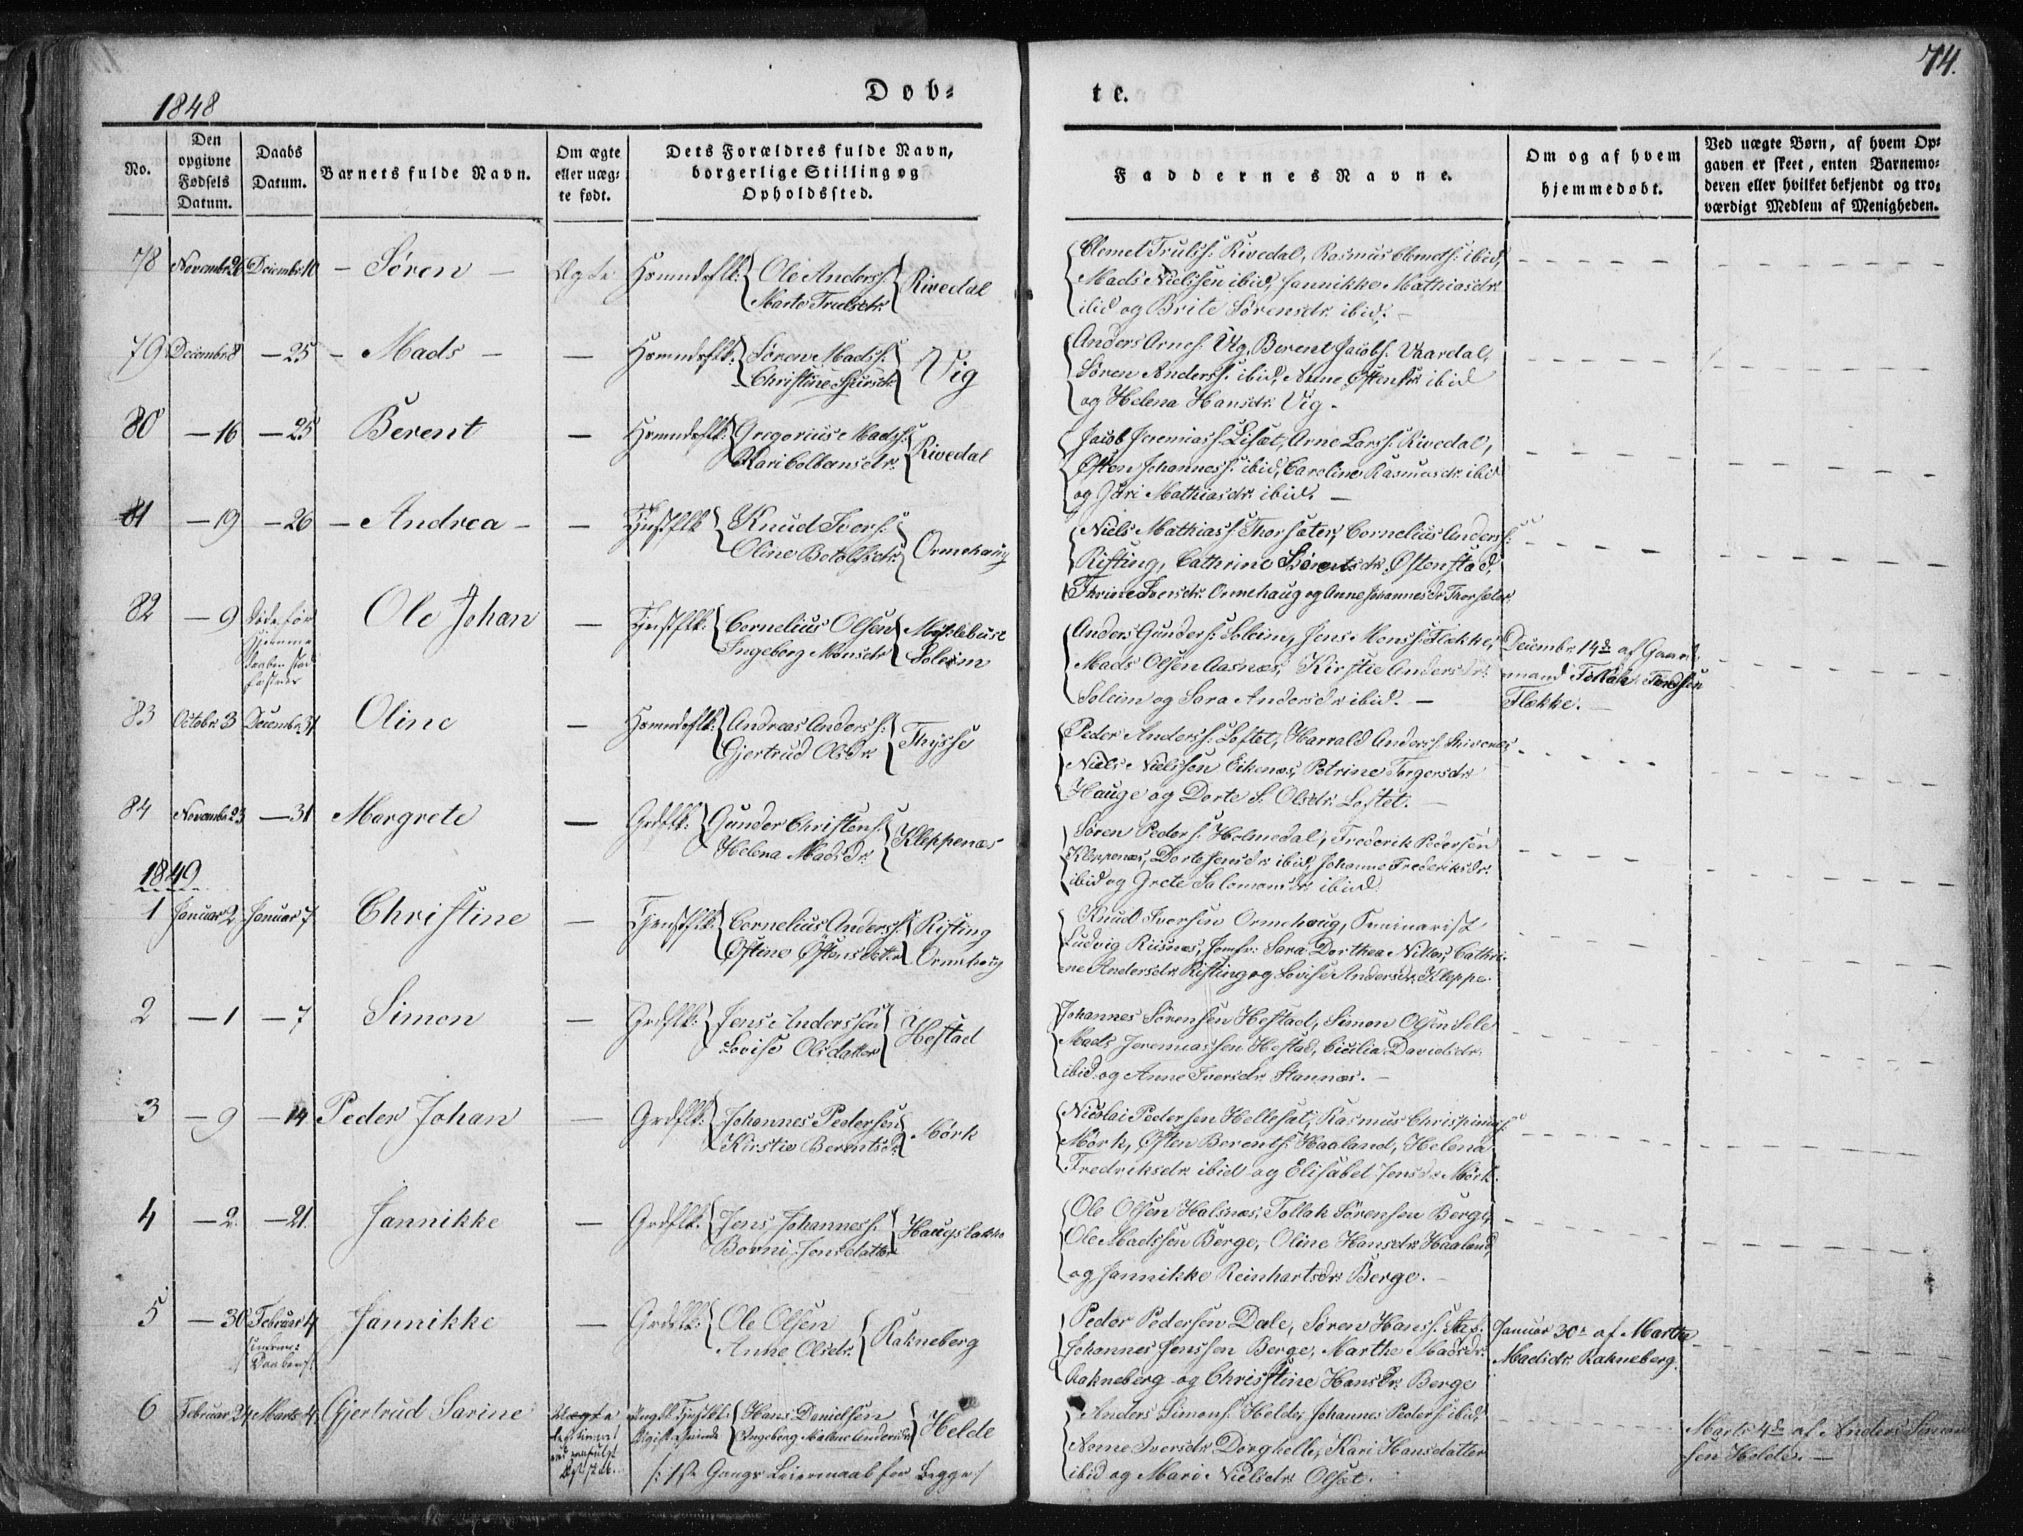 74.
1848
Døb-
te.
No.
Den opgivne Fødsels Datum.
Daabs Datum.
Barnets fulde Navn.
Om ægte eller uæg-te født.
Dets Forældres fulde Navn, borgerlige Stilling og Opholdssted.
Faddernes Navne.
Om og af hvem hjemmedøbt.
Ved uægte Børn, af hvem Op-gaven er skeet, enten Barnemo-deren eller hvilket bekjendt og tro-værdigt Medlem af Menigheden.
78 Novembr 20 Decembr 10 – Søren – Ægte Hommdsflk: Ole Anders: Marte Trulsdr. Rivedal
Clemet Truls: Rivedal, Rasmus Clemets: ibid,
Mads Nielssen ibid, Jannikke Mathiasdr.
ibid og Brite Sørensdr. ibid. –
79 Decembr 8 – 25 – Mads – – Hommdsflk: Søren Mads: Christine Vig
Anders Arnes: Vig, Berent Jacobs: Vaardal,
Søren Anders: ibid, Anne Østensdr. ibid
og Helena Hansdr. Vig.
80 – 16 – 25 Berent – Hommdsflk: Gregorius Mads: Kari Colbensdr. Rivedal
Jacob Jeremias: Liset, Arne Lars: Rivedal,
Østen Johannes: ibid, Caroline Rasmusdr. ibid
og Mathiasdr. ibid. –
81 – 19 – 26 – Andrea – – Knud Ivers: Oline Botolfsdr. Ormehaug
Niels Mathias: Thorsæter, Cornelius Anders:
Rifting, Cathrine Østenstad,
Thrine Iversdr. Ormehaug og Anne Johannesdr. Thorsæter.
82 – 9 Ole Johan – Cornelius Olsen Ingeborg Monsdr. Soleim
Anders Gunders: Soleim, Jens Mons: Flekke,
Mads Olsen Aasnæs, Kirstie Andersdr.
Soleim og Sara Andersdr. ibid. –
Decembr 14de af Gaard
mand
Flekke.
83 Octobr 3 Decembr 31 Oline – Hommdsflk: Andreas Anders: Gjertrud Olsdr. Thysse
Peder Anders: Loftet, Harrald Anders:
Niels Nielssen Eikenæs, Petrine Torgersdr.
Hauge og Dorte S. Olsdr. Loftet.
84 Novembr 23 – 31 Margrete – Grdflk: Gunder Christens: Helena Madsdr. Kleppenæs
Søren Peders: Holmedal, Frederik Pedersen
Kleppenæs, Dorte Jensdr. ibid, Johanne Frederiksdr.
ibid og Grete Salomonsdr. ibid.
1849
1 Januar 2 Januar 7 Christine – Cornelius Anders: Østine Østensdatter Rifting Ormehaug
Knud Iversen Ormehaug, Seminarist
Ludvig Riisnæs, Jomfr: Sara Dorthea Nitter, Cathri-
ne Andersdr. Rifting og Lovise Andersdr. Kleppe.
2 – 1 – 7 Simon – Grdflk: Jens Anderssen Lovise Olsdatter Hestad
Johannes Sørensen Hestad, Simon Olsen Sele
Mads Jeremiassen Hestad, Cicilia Davidsdr.
ibid og Anne Iversdr. Stannæs. –
3 – 9 – 14 Peder Johan – Grdflk: Johannes Pedersen Kirstie Berentsdr. Mørk
Nicolai Pedersen Hellesæt, Rasmus Chrispinus:
Mørk, Østen Berents: Haaland, Helena
Fredriksdr. ibid og Elisabet Jensdr. Mørk.
4 – 2. – 21. Jannikke – Grdflk: Jens Johannes: Borni Jonsdatter Haugsbakke
Ole Olsen Halsnæs, Tollak Sørensen Berge,
Ole Madssen Berge, Oline Hansdr. Haaland,
og Jannikke Reinhartsdr. Berge.
5 – 30 Februar 4 Jannikke – Grdflk: Ole Olsen Anne Olsdr. Rakneberg
Peder Pedersen Dale, Søren Hans:
Johannes Jenssen Berge, Marthe Madsdr.
Rakneberg og Christine Hansdr. Berge
Januar 30te af Marthe
Madsdr. Rakneberg.
6 Februar 24 Marts 4 Gjertrud Sarine Hans Danielsen Ingeborg Malene Andersdr. Helde
/: 1ste Gangs Leiermaal for Begge :/
Anders Simons: Helde, Johannes Peders: ibid,
Anne Iversdr. Dorghelle, Kari Hansdatter
ibid og Mari Nielsdr. Olset.
Marts 4de af Anders Simon
sen Helde. –